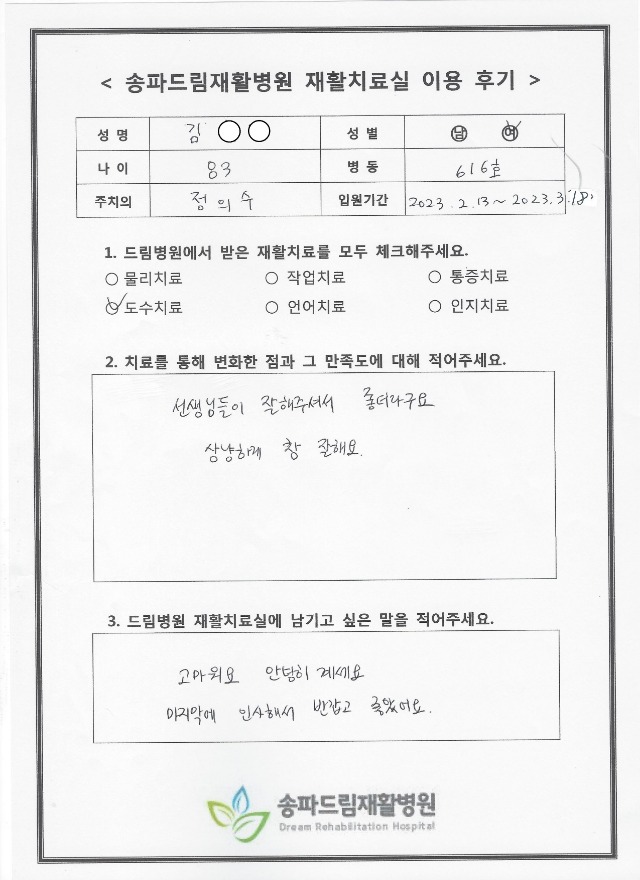 < 송파드림재활병원 재활치료실 이용 후기 >
성 명 김 ○○ 성 별 남 여
나 이 83 병 동 616호
주치의 정의수 입원기간 2023. 2. 13 ~ 2023. 3. 18.
1. 드림병원에서 받은 재활치료를 모두 체크해주세요.
○ 물리치료 ○ 작업치료 ○ 통증치료
○ 도수치료 ○ 언어치료 ○ 인지치료
2. 치료를 통해 변화한 점과 그 만족도에 대해 적어주세요.
선생님들이 잘해주셔서 좋더라구요
상냥하게 참 잘해요.
3. 드림병원 재활치료실에 남기고 싶은 말을 적어주세요.
고마워요 안녕히 계세요
마지막에 인사해서 반갑고 좋았어요.
송파드림재활병원
Dream Rehabilitation Hospital